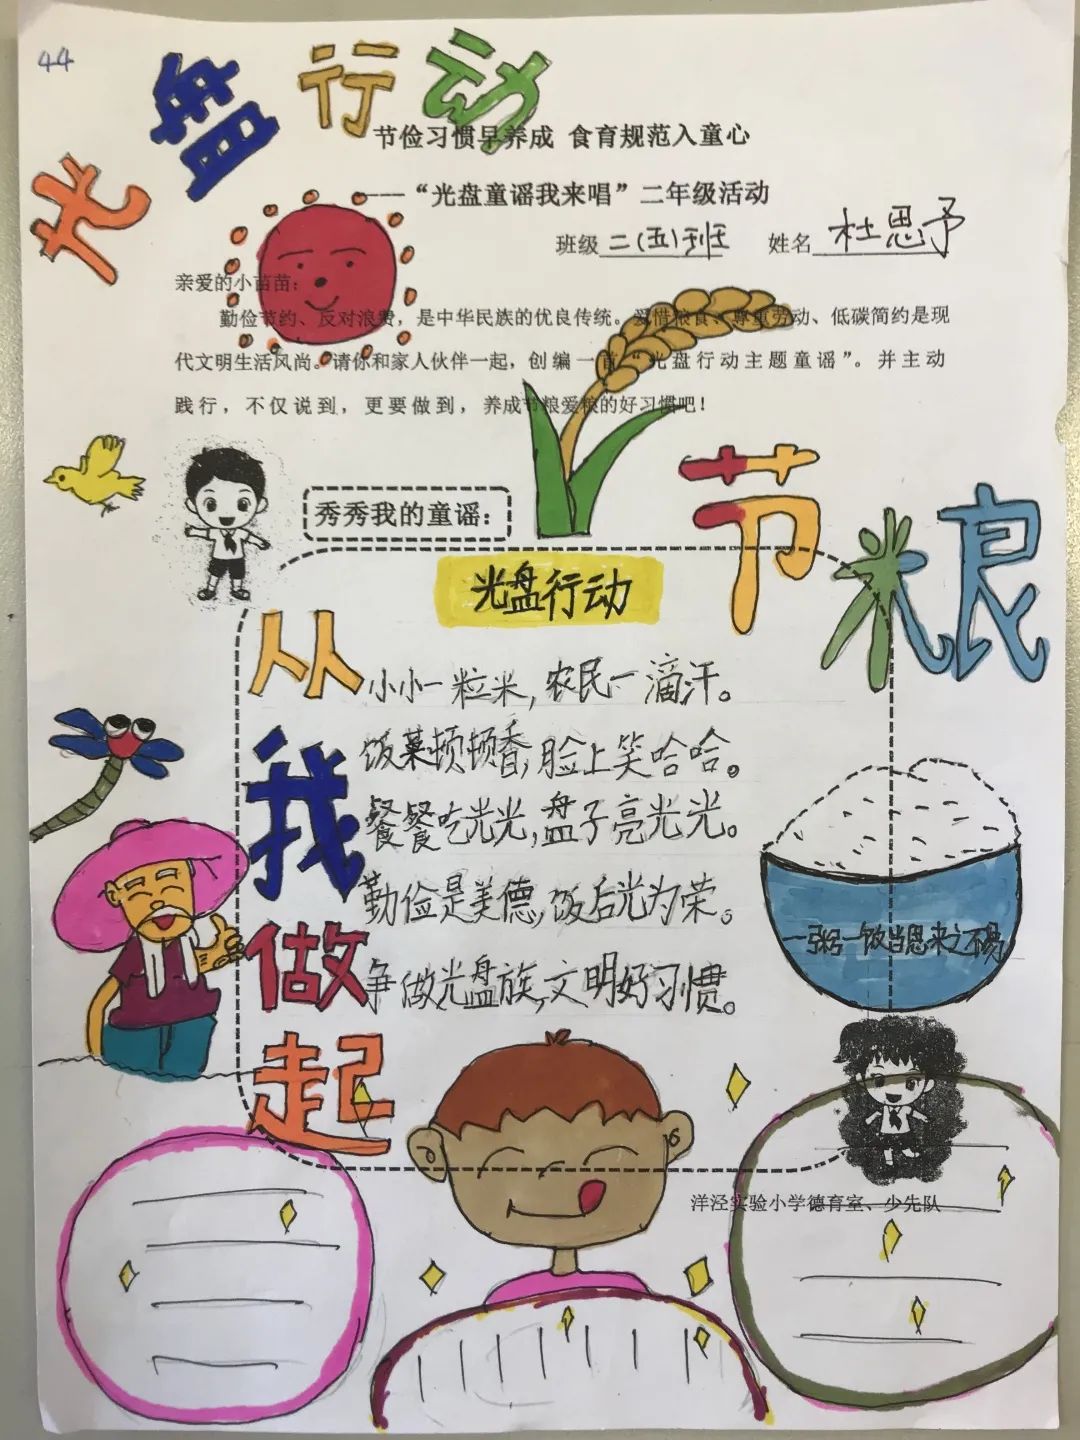 44
光盘行动
节俭习惯早养成 食育规范入童心
——“光盘童谣我来唱”二年级活动
班级 二(五)班 姓名 杜思予
亲爱的小苗苗：
勤俭节约、反对浪费，是中华民族的优良传统。爱惜粮食、尊重劳动、低碳简约是现
代文明生活风尚。请你和家人伙伴一起，创编一首“光盘行动主题童谣”。并主动
践行，不仅说到，更要做到，养成节粮爱粮的好习惯吧！
节粮
秀秀我的童谣：
光盘行动
从我做起
小小一粒米，农民一滴汗。
饭菜顿顿香，脸上笑哈哈。
餐餐吃光光，盘子亮光光。
勤俭是美德，饭后光为荣。
争做光盘族，文明好习惯。
一粥一饭当思来之不易
洋泾实验小学德育室、少先队